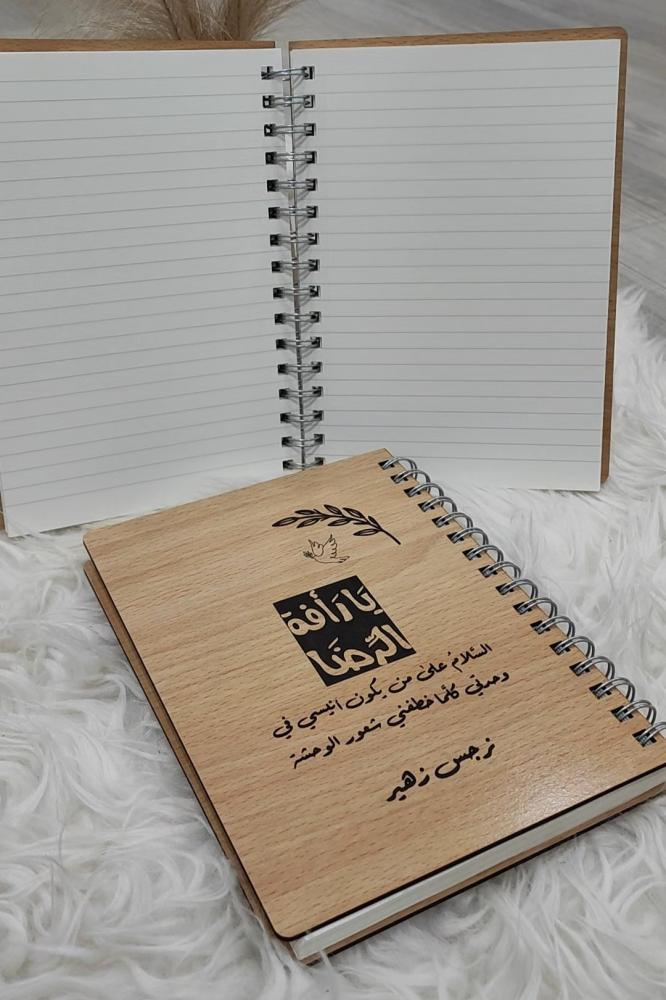 يَا رَأفة
الرِّضَا
السّلامُ على من يكون انيسي في
وحدتي كلّما خطفني شعور الوحشة
نرجس زهير